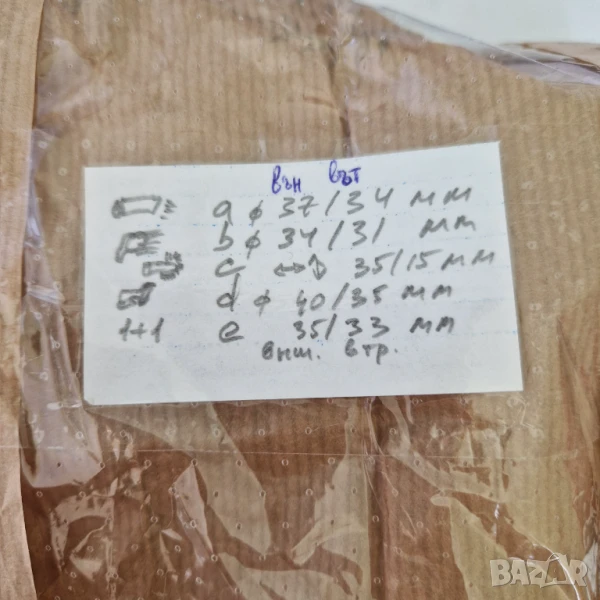 вън вът
a ф 37/34 мм
b ф 34/31 мм
c ↔↕ 35/15 мм
d ф 40/35 мм
1+1 e 35/33 мм
внш. втр.
BAZAR